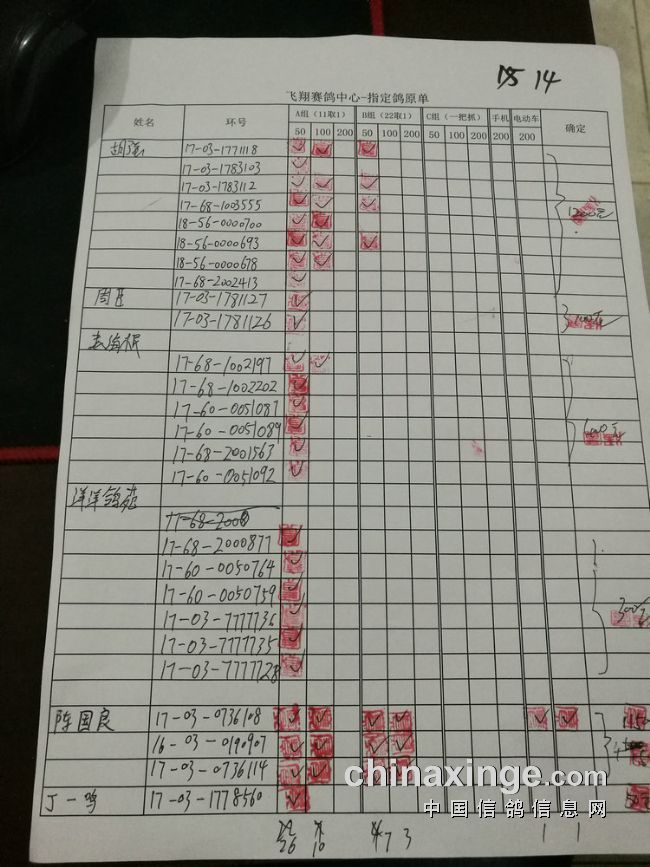 14
飞翔赛鸽中心-指定鸽原单
姓名 环号 A组（11取1） B组（22取1） C组（一把抓） 手机 电动车 确定
50 100 200 50 100 200 50 100 200 200 200
17-03-1771118
17-03-1783103
17-03-1783112
17-68-1003555
18-56-0000700
18-56-0000693
18-56-0000678
17-68-2002413
17-03-1781127
17-03-1781126
17-68-1002197
17-68-1002202
17-60-0051087
17-60-0051089
600元
17-68-2001563
17-60-0051092
洋洋鸽苑
17-68-2000877
17-60-0050764
17-60-0050759
17-03-7777736
300元
17-03-7777735
17-03-7777728
陈国良 17-03-0736108
16-03-0190907
17-03-0736114
丁一鸣 17-03-1778560
26 10 7 3 1 1
chinaxinge.com
中国信鸽信息网